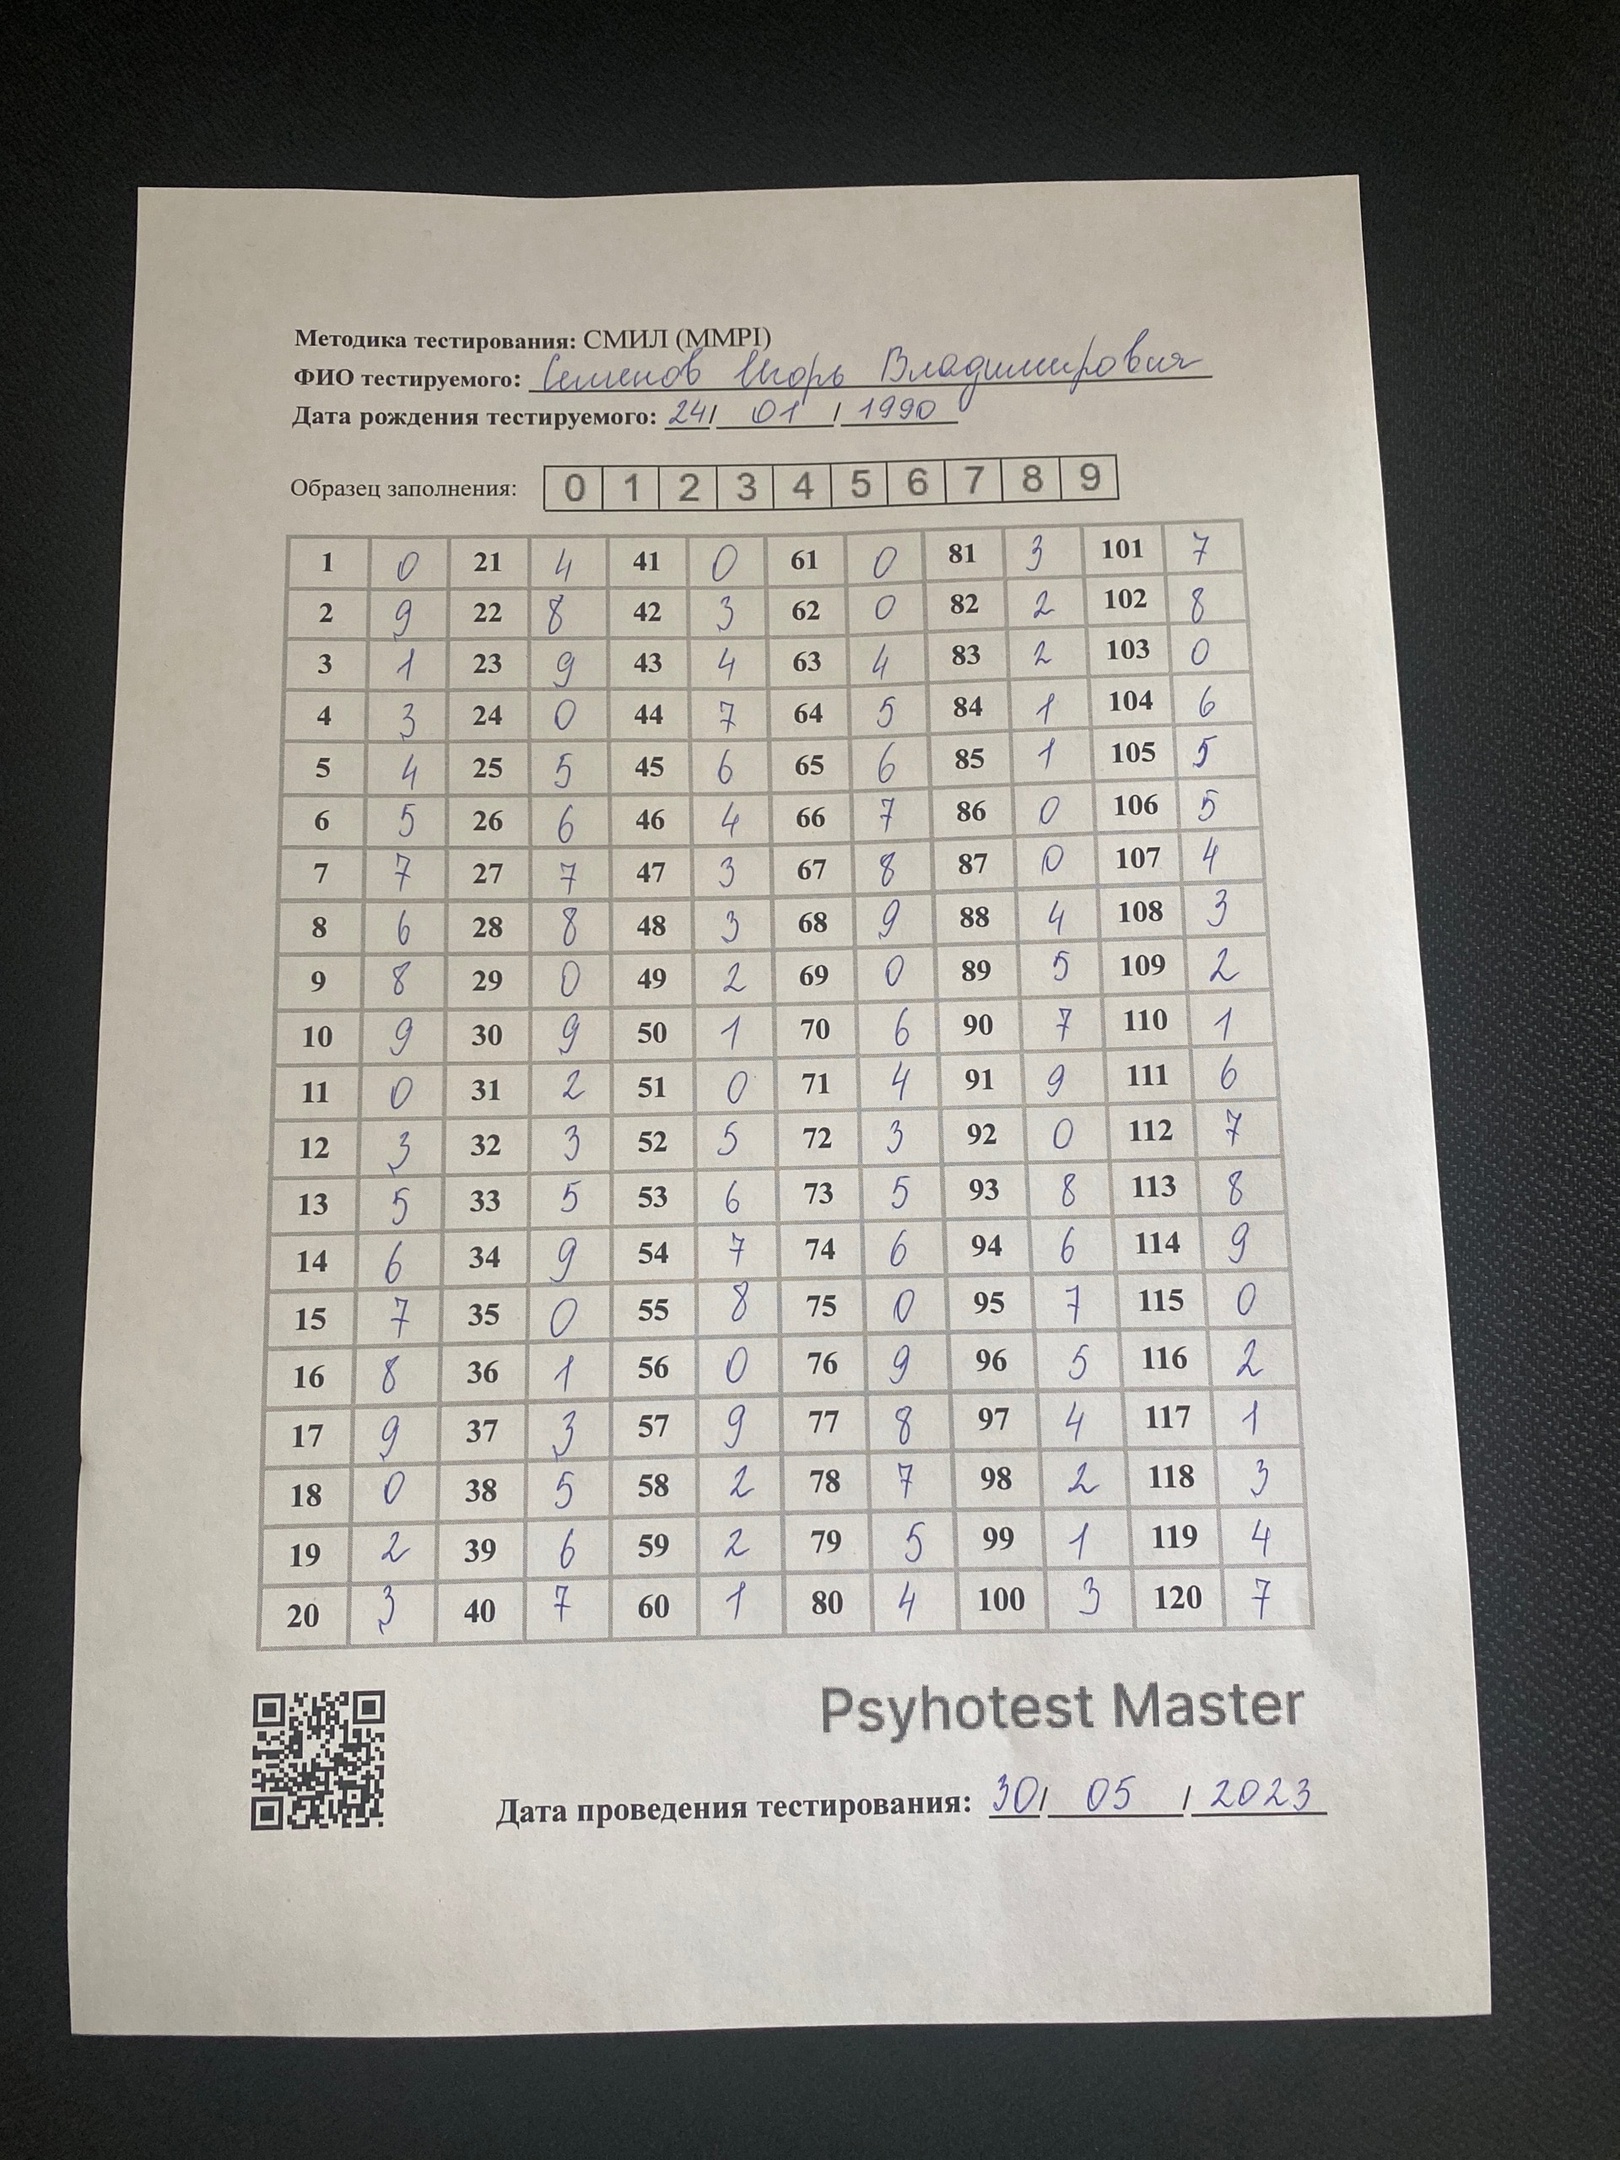 Методика тестирования: СМИЛ (MMPI)
ФИО тестируемого: Семенов Игорь Владимирович
Дата рождения тестируемого: 24/ 01 / 1990
Образец заполнения: 0 1 2 3 4 5 6 7 8 9
1 0 21 4 41 0 61 0 81 3 101 7
2 9 22 8 42 3 62 0 82 2 102 8
3 1 23 9 43 4 63 4 83 2 103 0
4 3 24 0 44 7 64 5 84 1 104 6
5 4 25 5 45 6 65 6 85 1 105 5
6 5 26 6 46 4 66 7 86 0 106 5
7 7 27 7 47 3 67 8 87 0 107 4
8 6 28 8 48 3 68 9 88 4 108 3
9 8 29 0 49 2 69 0 89 5 109 2
10 9 30 9 50 1 70 6 90 7 110 1
11 0 31 2 51 0 71 4 91 9 111 6
12 3 32 3 52 5 72 3 92 0 112 7
13 5 33 5 53 6 73 5 93 8 113 8
14 6 34 9 54 7 74 6 94 6 114 9
15 7 35 0 55 8 75 0 95 7 115 0
16 8 36 1 56 0 76 9 96 5 116 2
17 9 37 3 57 9 77 8 97 4 117 1
18 0 38 5 58 2 78 7 98 2 118 3
19 2 39 6 59 2 79 5 99 1 119 4
20 3 40 7 60 1 80 4 100 3 120 7
Psyhotest Master
Дата проведения тестирования: 30/ 05 / 2023